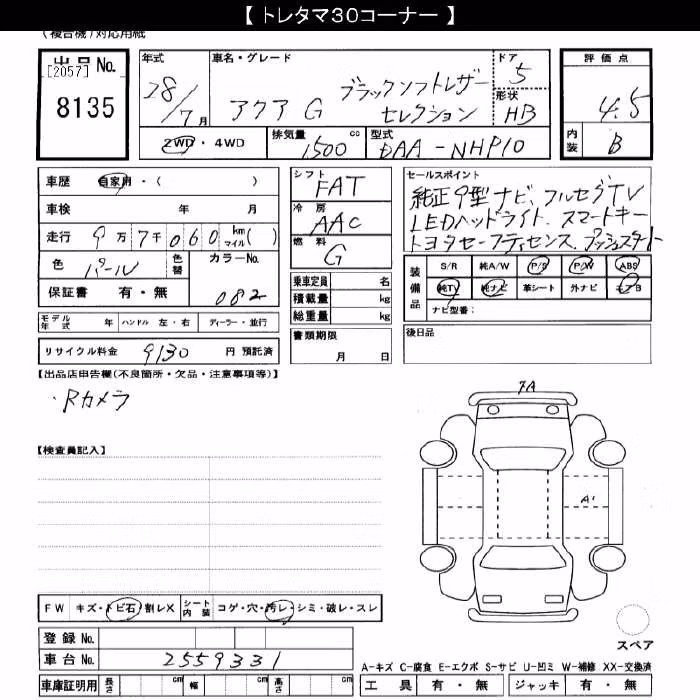 【 トレタマ30コーナー 】
(複合機)対応用紙
出品No.
[2057]
8135
年式
28/7月
車名・グレード
アクア G ブラックソフトレザー
セレクション
ドア
5
形状
HB
評価点
4.5
内装
B
2WD・4WD
排気量
1500 cc
型式
DAA-NHP10
車歴 自家用・( )
車検 年 月
走行 9万7千060 km マイル( )
色 パール 色替 カラーNo.
保証書 有・無 082
シフト
FAT
冷房
AAC
燃料
G
乗車定員 名
積載量 kg
総重量 kg
セールスポイント
純正9型ナビ、フルセグTV
LEDヘッドライト、スマートキー
トヨタセーフティセンス、プッシュスタート
装備品
S/R 純A/W P/S P/W ABS
純TV 純ナビ 革シート 外ナビ エアB
ナビ型番:
モデル年式 年 ハンドル 左・右 ディーラー・並行
リサイクル料金 9130 円 預託済
書類期限
月 日
後日品
【出品店申告欄(不良箇所・欠品・注意事項等)】
・Rカメラ
7A
A1
【検査員記入】
FW キズ・トビ石・割レX シート内装 コゲ・穴・汚レ・シミ・破レ・スレ
登録No.
車台No. 2559331
車庫証明用 長さ cm 幅 cm 高さ cm
スペア
A-キズ C-腐食 E-エクボ S-サビ U-凹ミ W-補修 XX-交換済
工具 有・無 ジャッキ 有・無